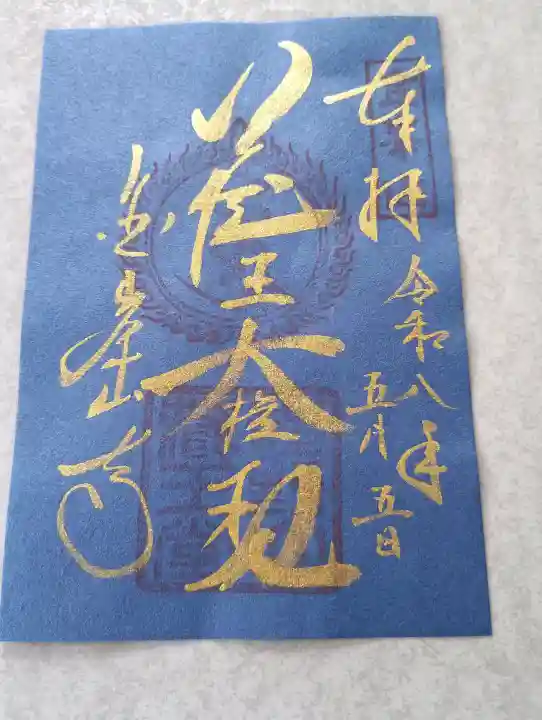 奉拝
令和八年
五月五日
蔵王大権現
金峯山寺